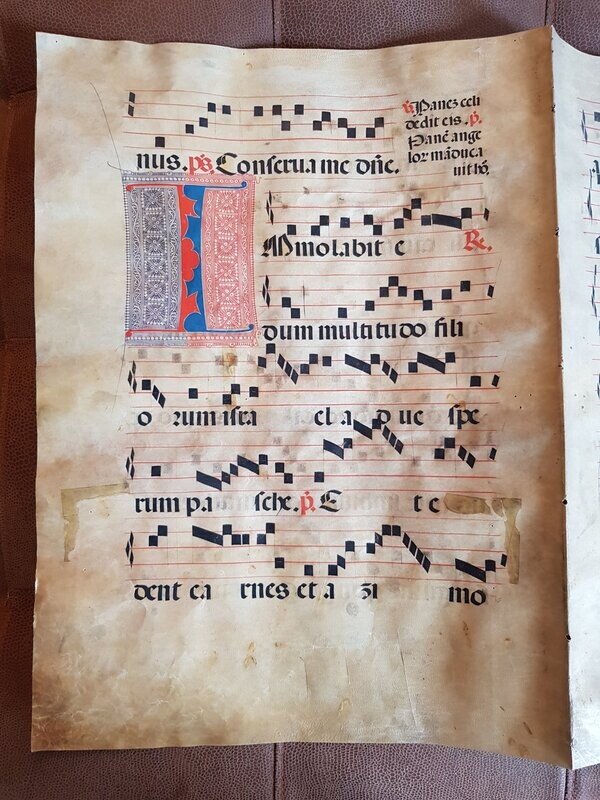 nus. ps. Conserua me dñe.
℣. Panez celi
dedit eis. ℣.
Panē ange
lor mãduca
uit hõ.
IMmolabit e ℟.
dum multitudo fili
o rum isra el ad ue spe
rum pa sche. ℣. E t e
dent ca rnes et a zi mo